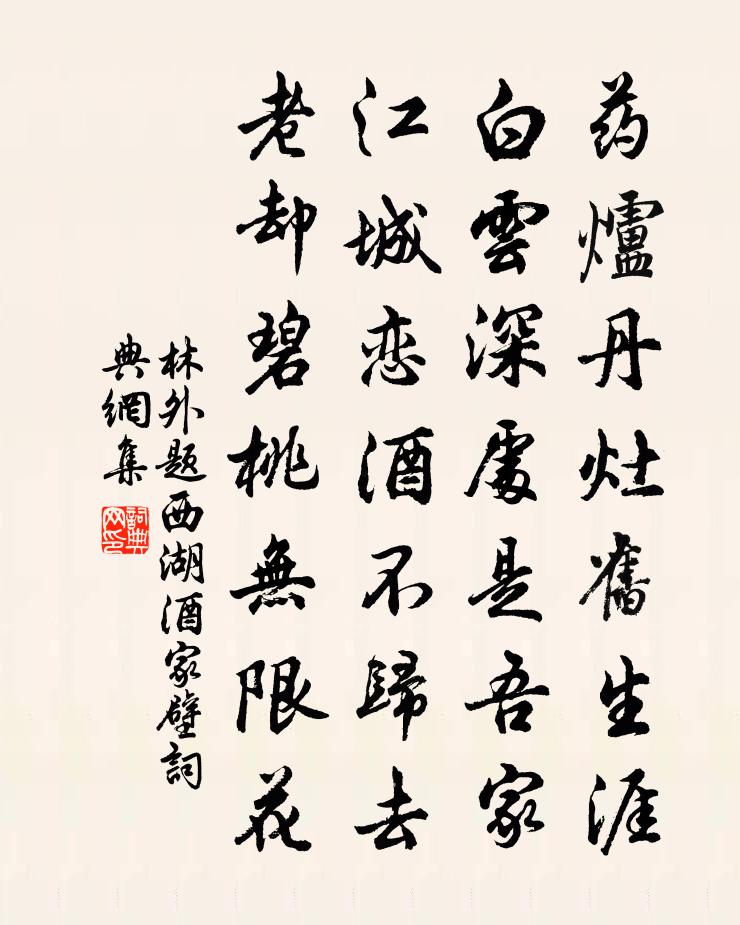 药爐丹灶舊生涯
白雲深處是吾家
江城恋酒不歸去
老却碧桃無限花
林外題西湖酒家壁詞
典網集
詞典網印